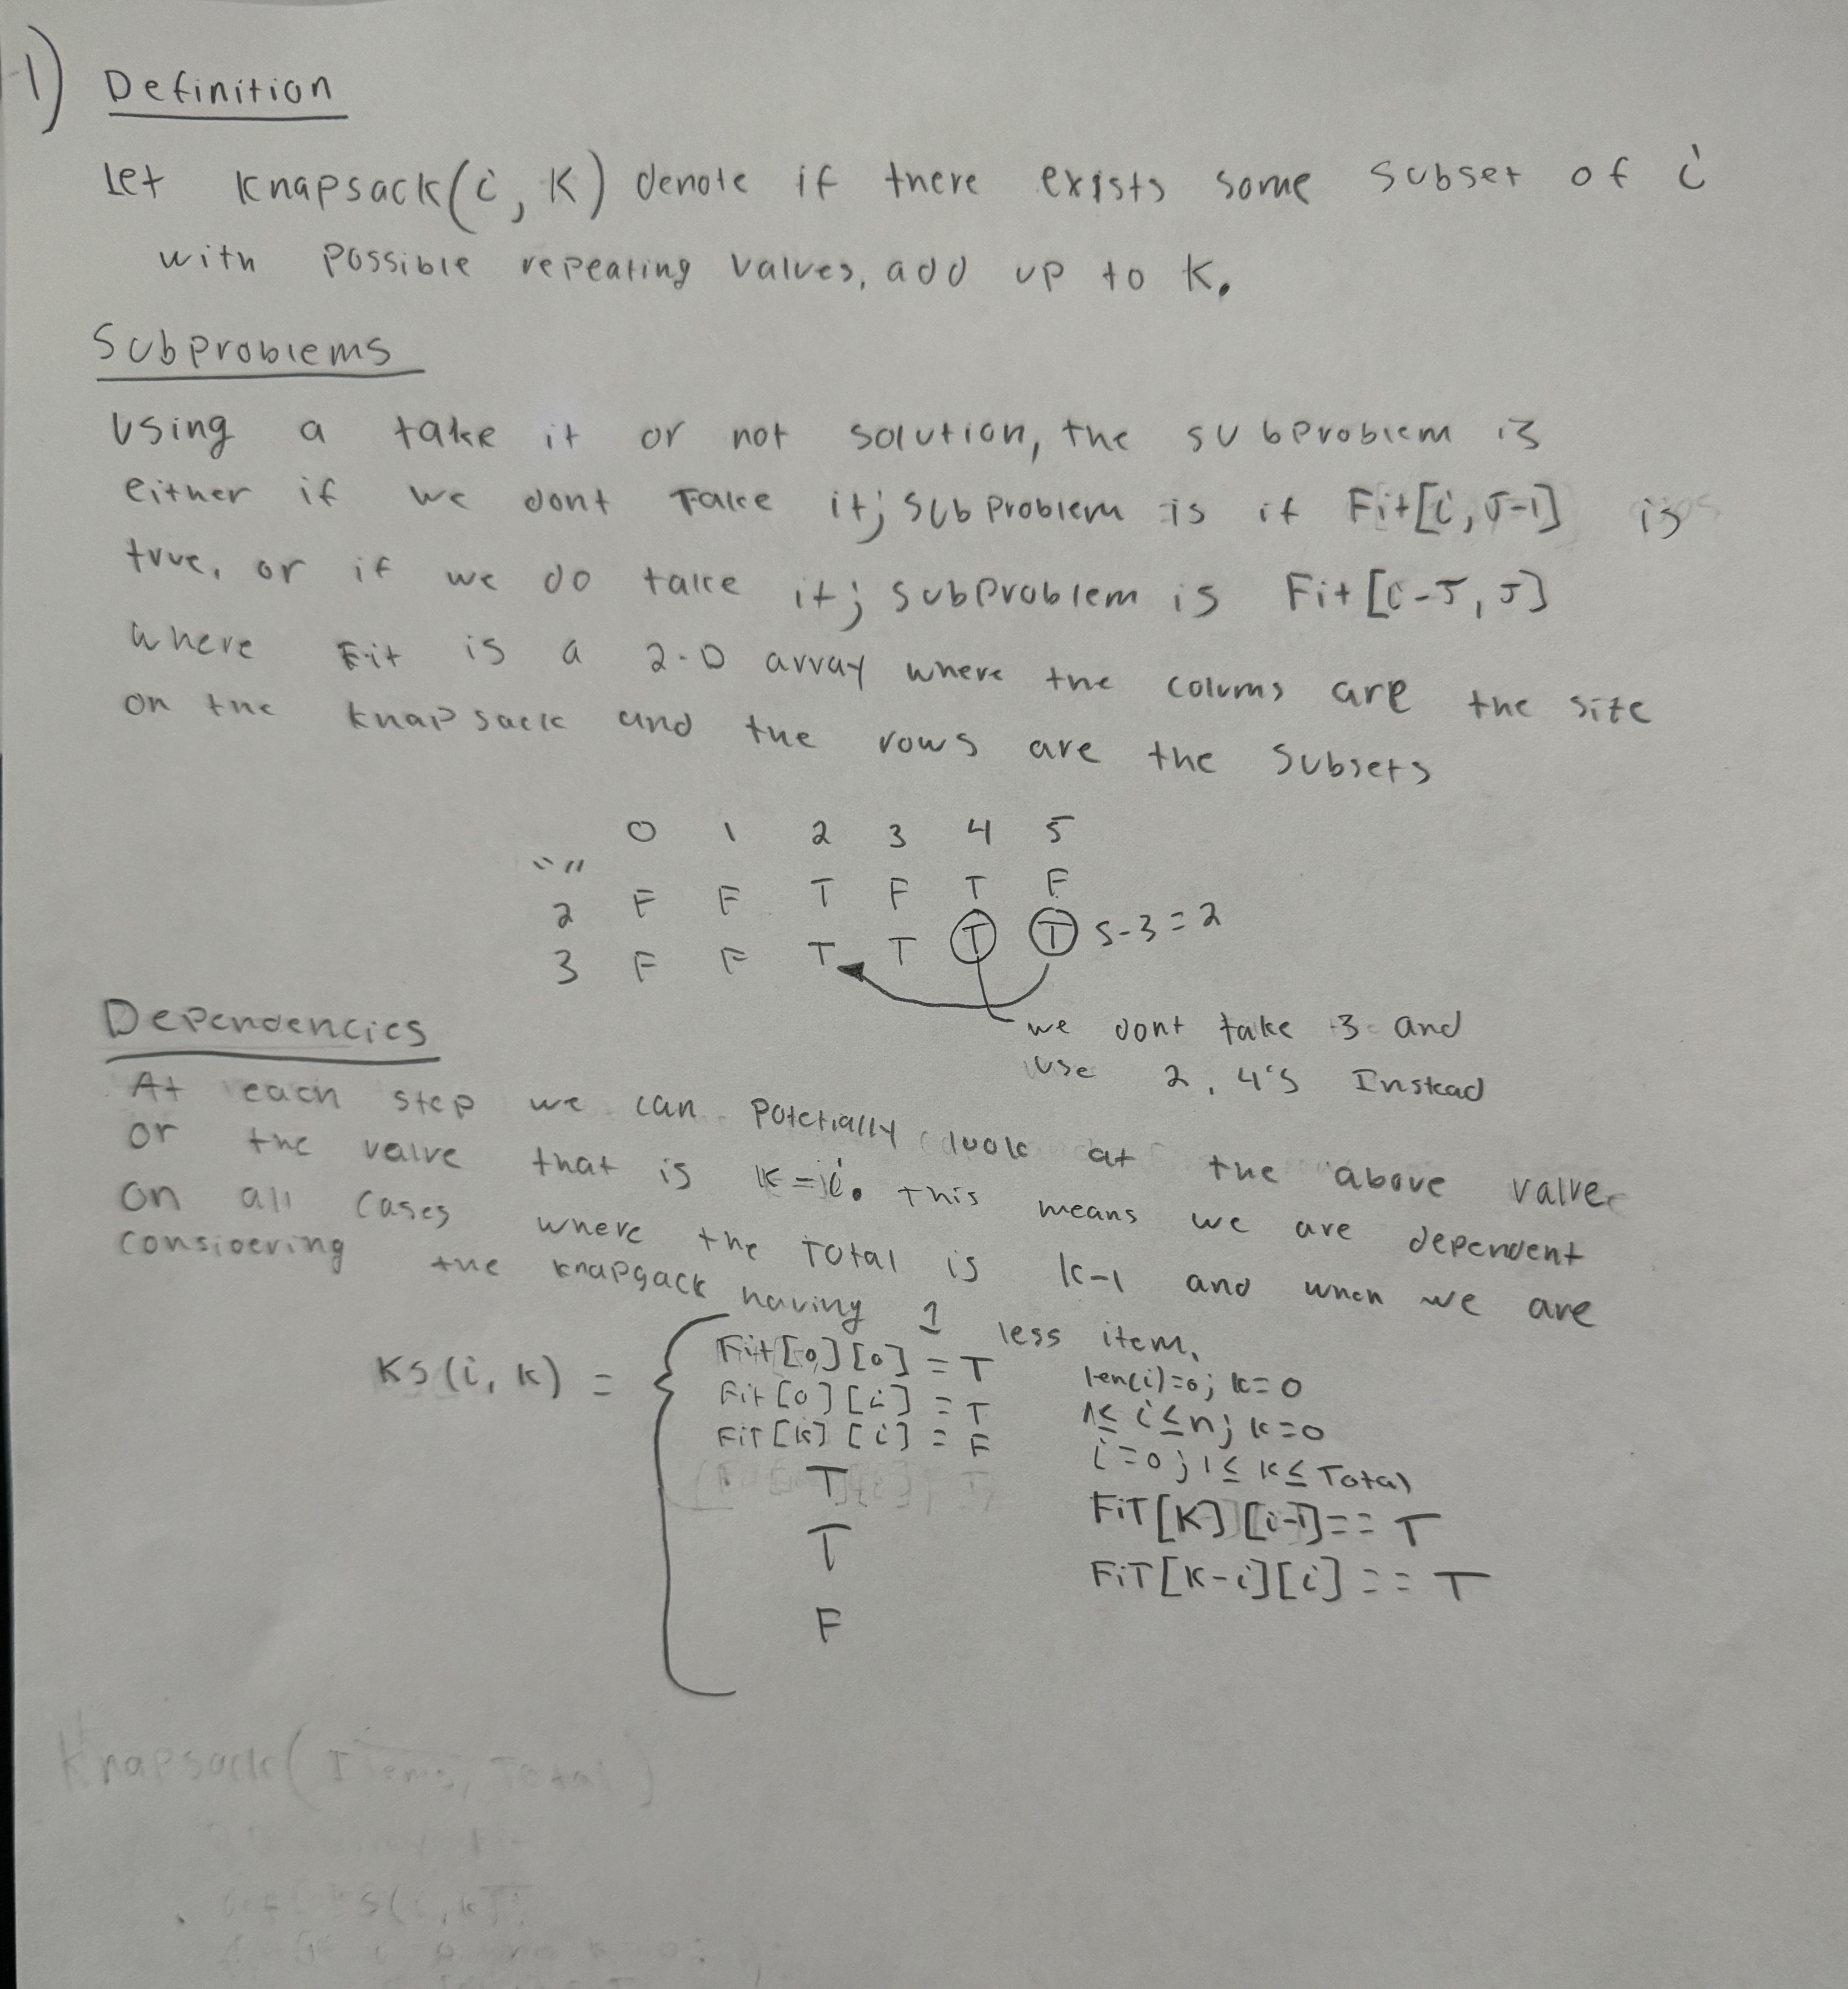 1) Definition
Let Knapsack(i, K) denote if there exists some subset of i
with possible repeating values, add up to K.
Subproblems
Using a take it or not solution, the subproblem is
either if we dont take it; subproblem is if Fit[i, J-1] is
true, or if we do take it; subproblem is Fit[i-J, J]
where Fit is a 2-D array where the colums are the size
on the knapsack and the rows are the subsets
0 1 2 3 4 5
""
2 F F T F T F
3 F F T T T T 5-3=2
we dont take 3 and
use 2, 4's Instead
Dependencies
At each step we can potetially look at the above value
or the value that is K-i. This means we are dependent
on all cases where the total is k-1 and when we are
considering the knapsack having 1 less item.
KS(i, k) = {
Fit[0][0] = T len(i)=0; k=0
Fit[0][i] = T 1≤ i ≤n; k=0
FiT[k][i] = F i=0; 1≤ k≤ Total
T FiT[K][i-1]== T
T FiT[K-i][i]== T
F
Knapsack(Items, Total)